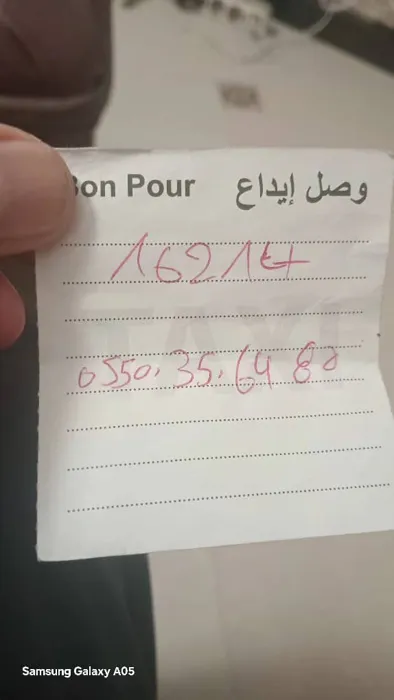 Bon Pour وصل إيداع
0550.35.64 80
Samsung Galaxy A05